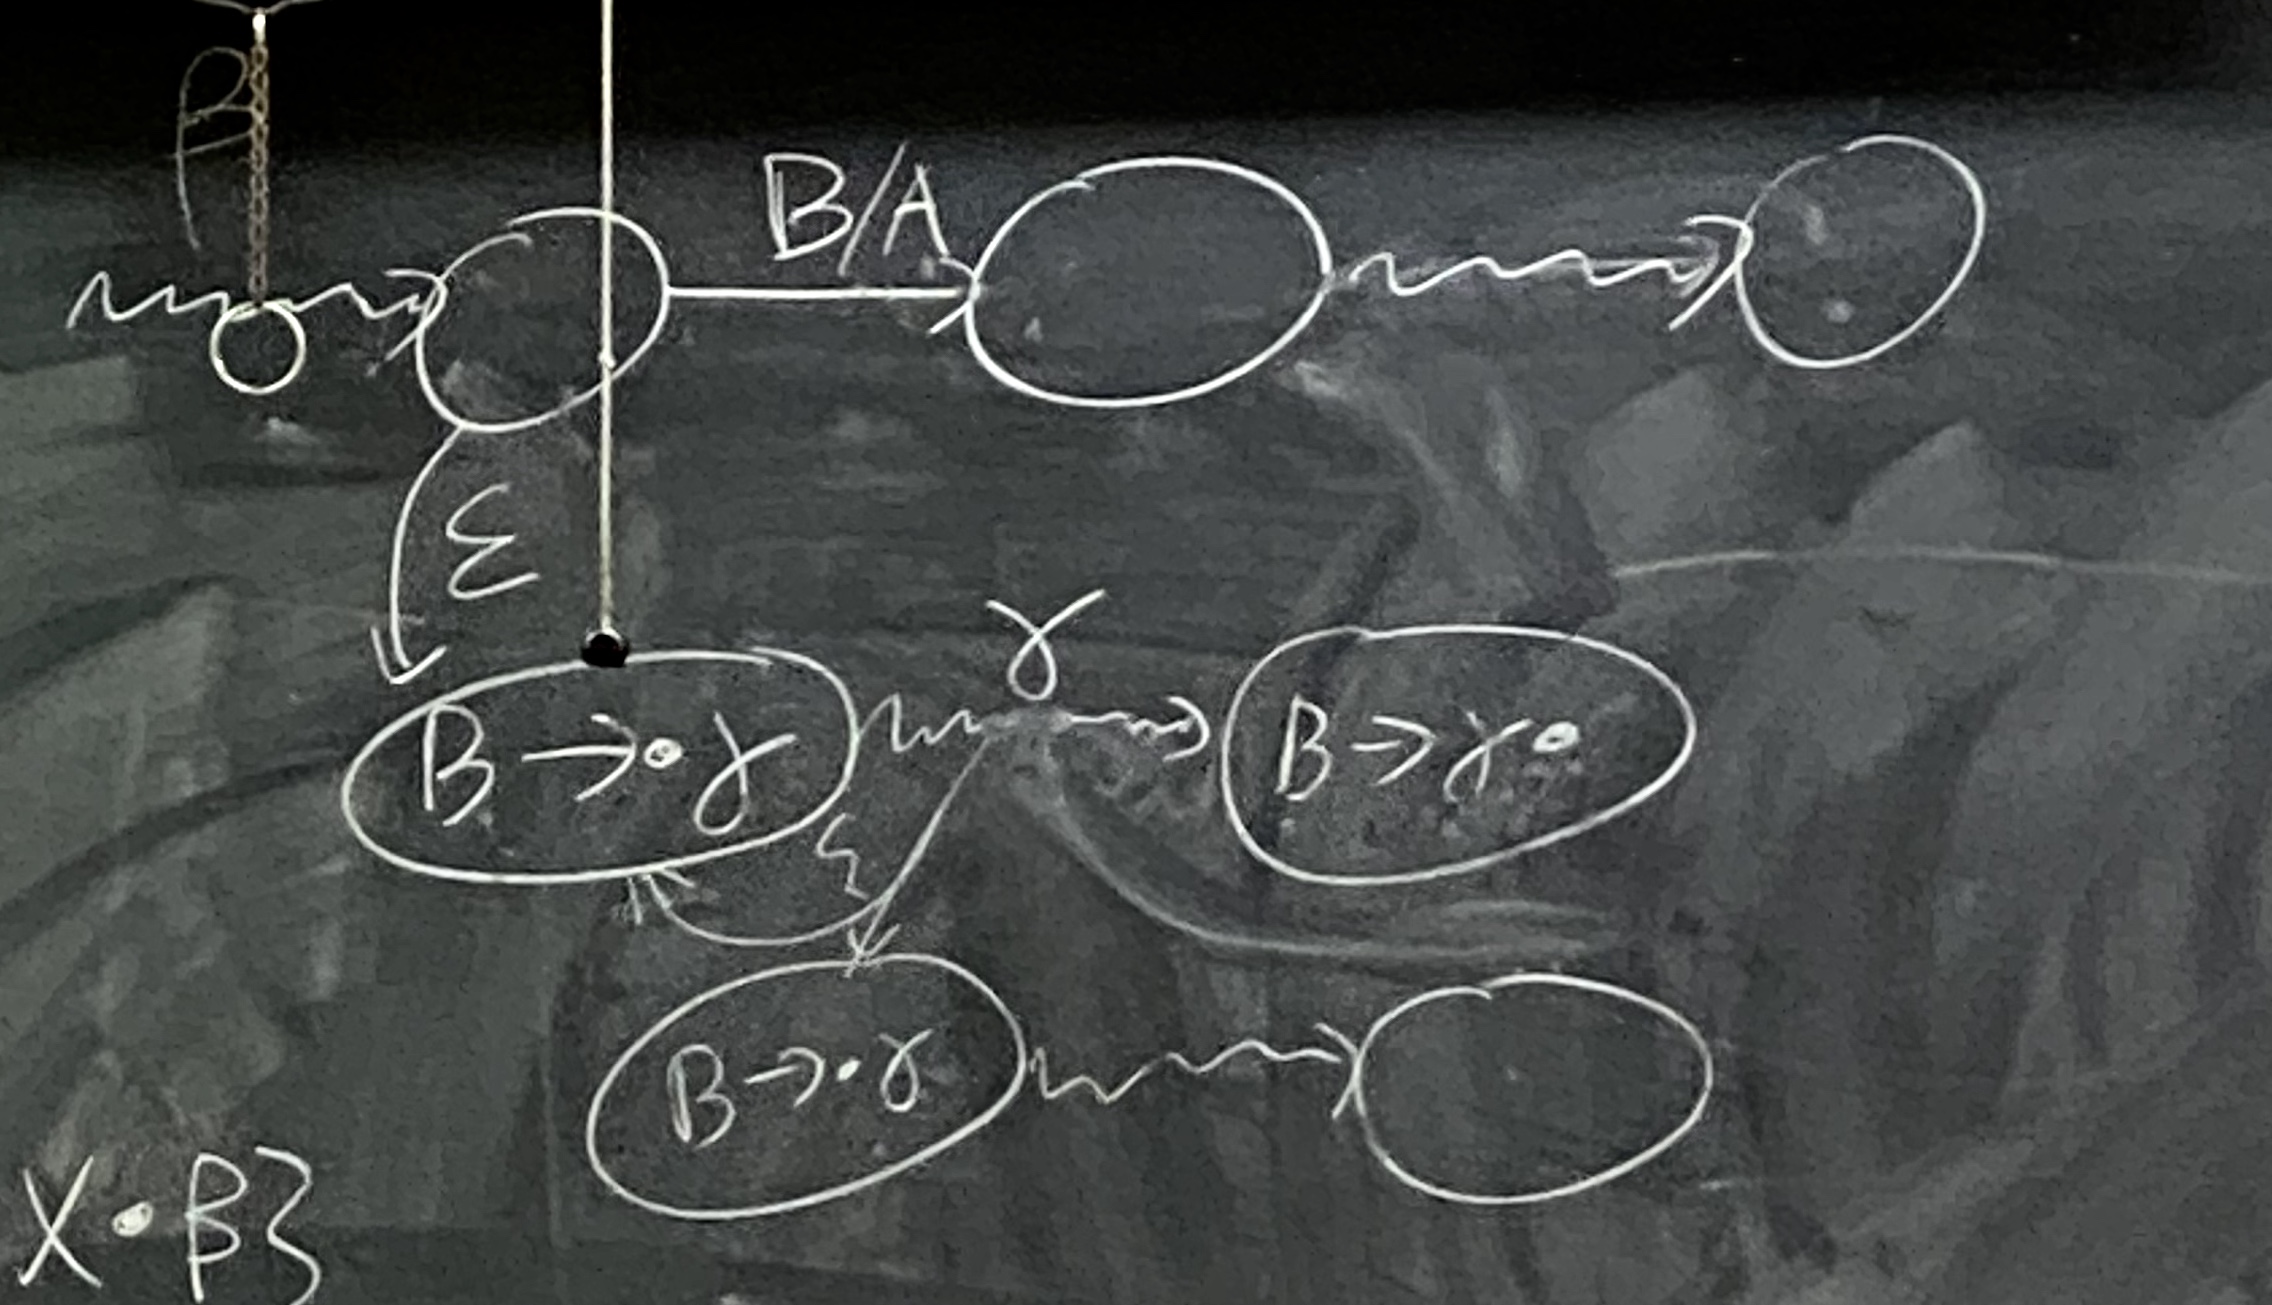 β
B/A
ε
γ
B→•γ B→γ•
ε
B→•γ
X•β}